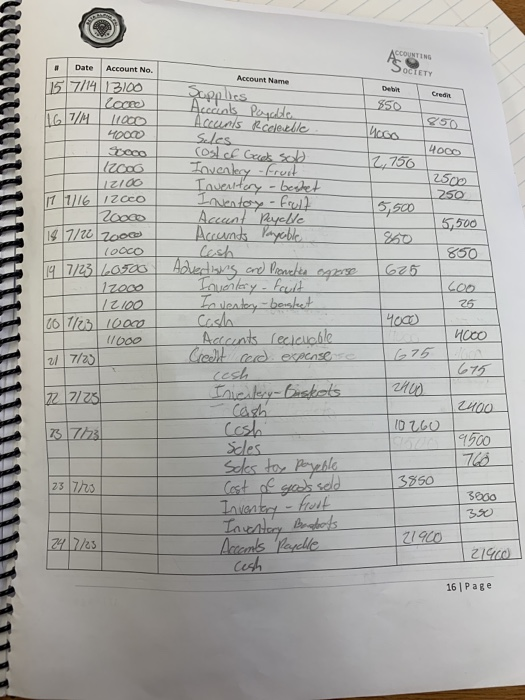 ACCOUNTING SOCIETY
# Date Account No. Account Name Debit Credit
15 7/14 13100 Supplies 850
20000 Accounts Payable 850
16 7/14 11000 Accounts Receievable 4000
40000 Sales 4000
50000 Cost of Goods Sold 2,750
12000 Inventory - Fruit 2500
12100 Inventory - basket 250
17 7/16 12000 Inventory - Fruit 5,500
20000 Account Payable 5,500
18 7/22 20000 Accounts Payable 850
10000 Cash 850
19 7/23 60500 Advertising and Promotion expense 625
12000 Inventory - fruit 600
12100 Inventory - basket 25
20 7/23 10000 Cash 4000
11000 Accounts recievable 4000
21 7/23 Credit card expense 675
cash 675
22 7/23 Inventory - Baskets 2400
Cash 2400
23 7/23 Cash 10260
Sales 9500
Sales tax Payable 760
23 7/23 Cost of goods sold 3850
Inventory - fruit 3500
Inventory Baskets 350
24 7/23 Accounts Payable 21900
Cash 21900
16 | Page